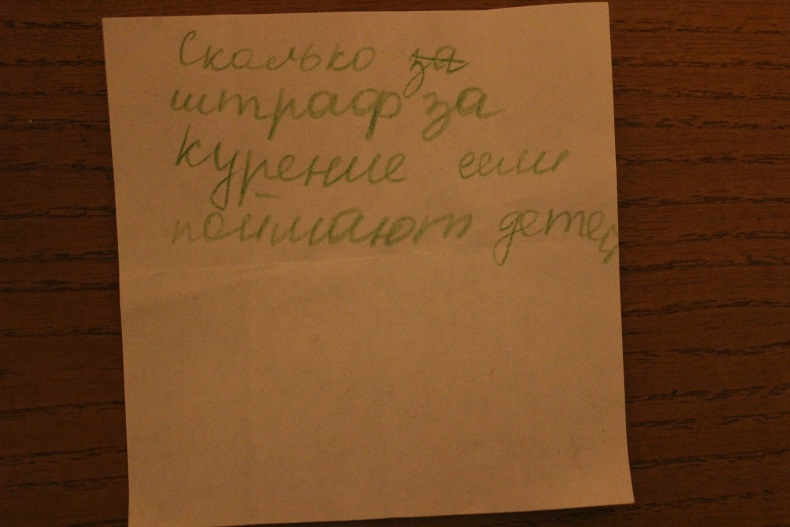 Сколько за
штраф за
курение если
поймают детей